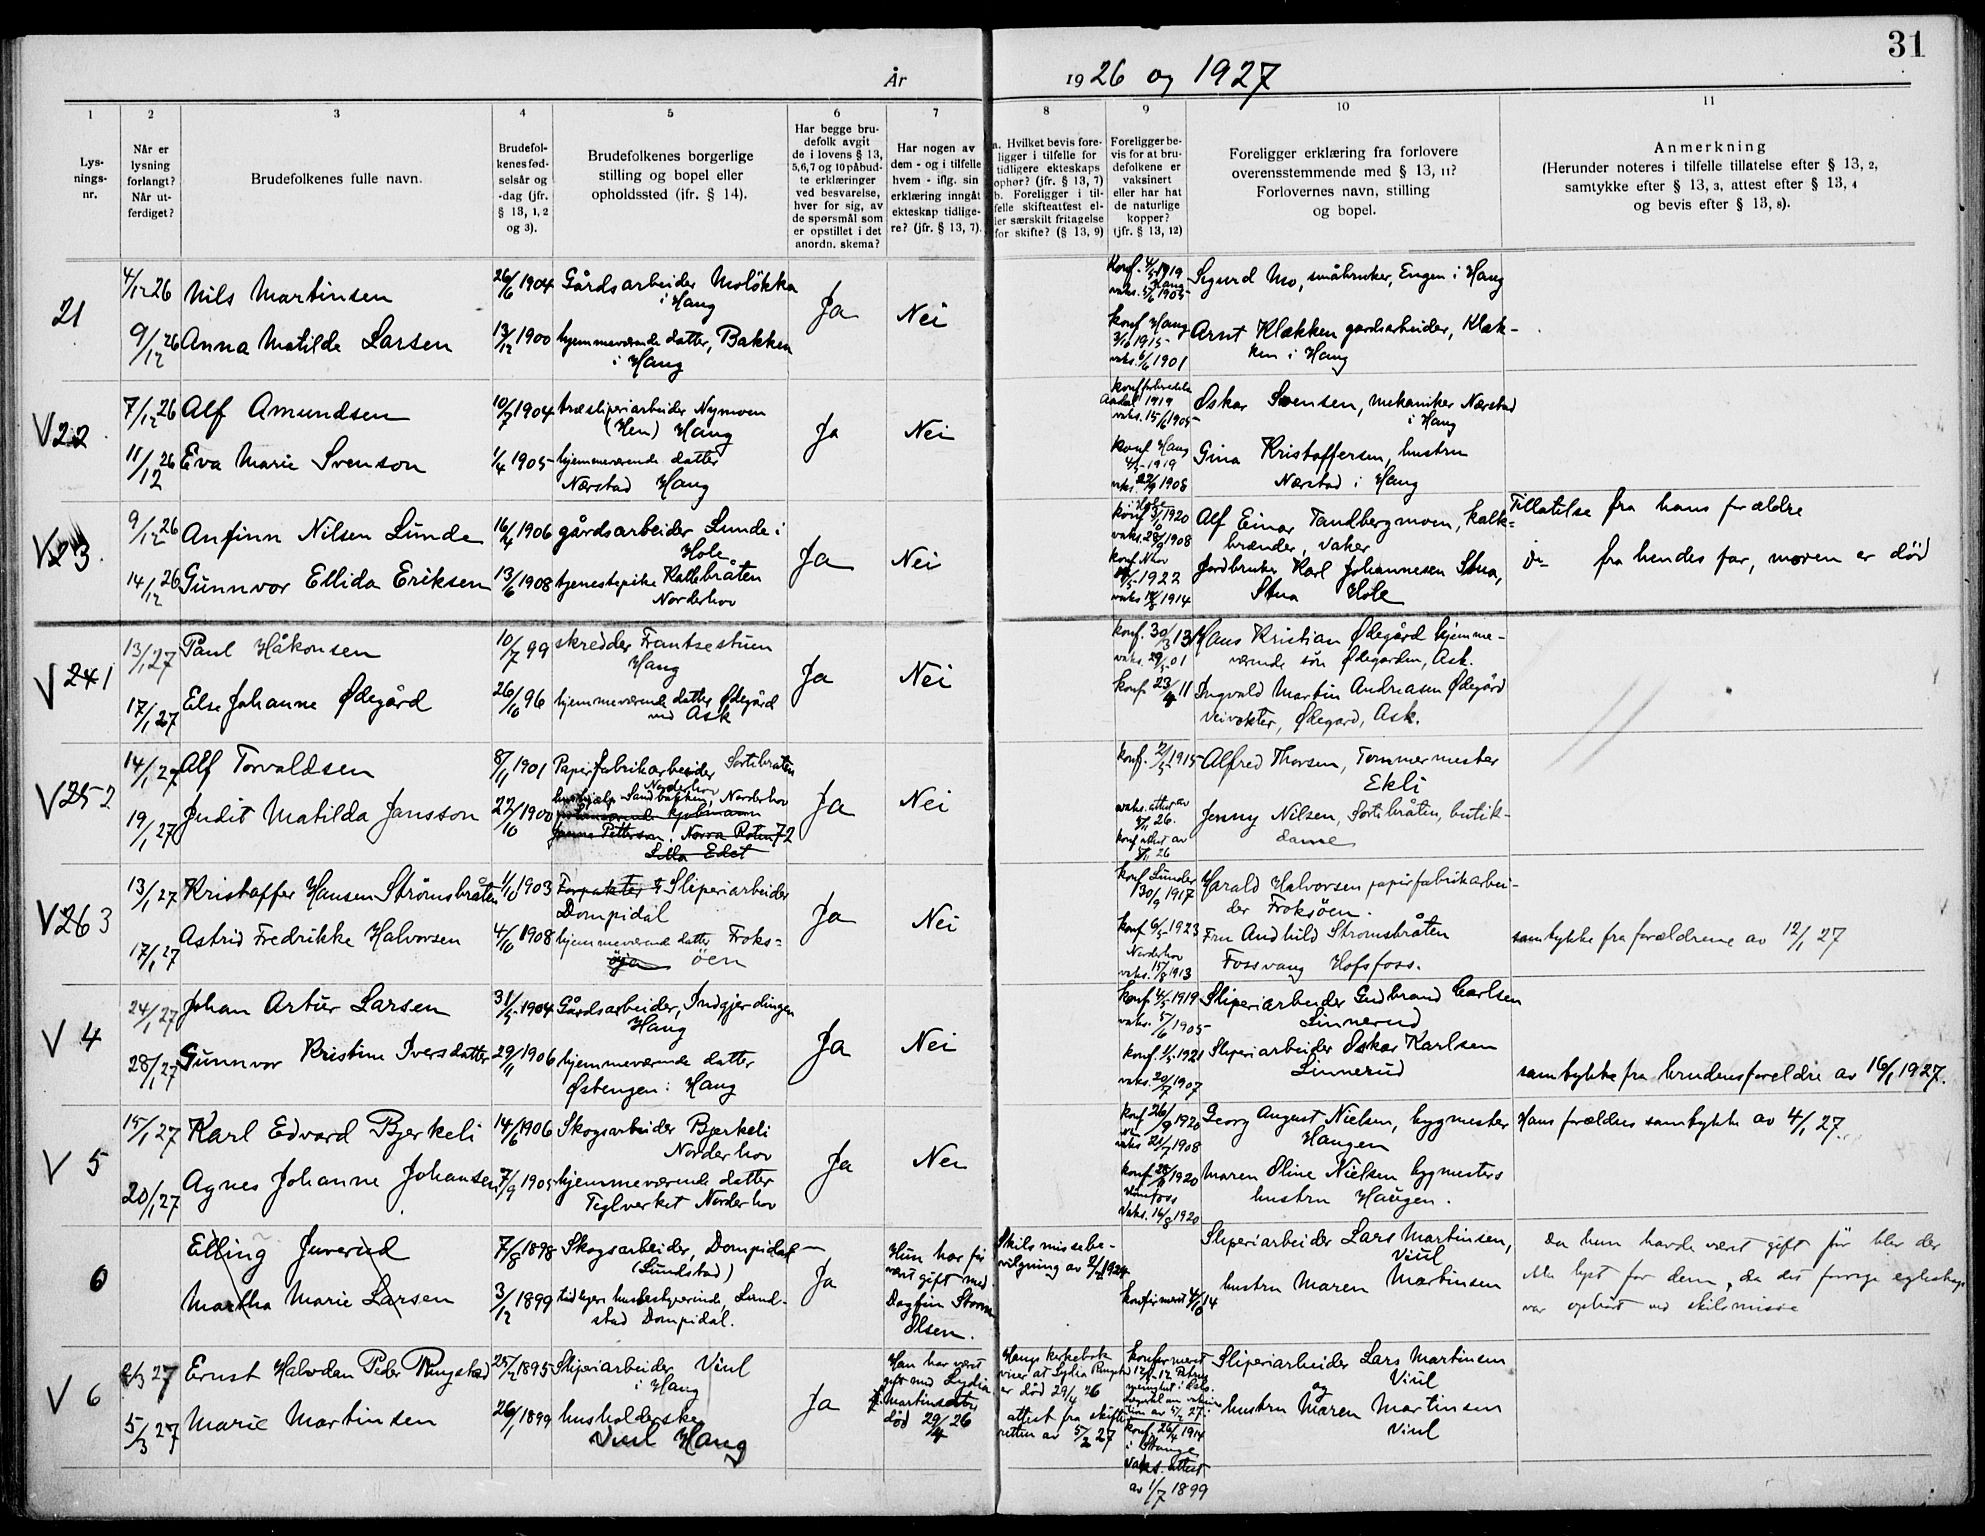 31
År
1926 og 1927
1
2
3
4
5
6
7
8
9
10
11
Lys-
nings-
nr.
Når er
lysning
forlangt?
Når ut-
ferdiget?
Brudefolkenes fulle navn.
Brudefol-
kenes fød-
selsår og
-dag (jfr.
§ 13, 1, 2
og 3).
Brudefolkenes borgerlige
stilling og bopel eller
opholdssted (jfr. § 14).
Har begge bru-
defolk avgit
de i lovens § 13,
5,6,7 og 10 påbud-
te erklæringer
ved besvarelse,
hver for sig, av
de spørsmål som
er opstillet i det
anordn. skema?
Har nogen av
dem - og i tilfelle
hvem - iflg. sin
erklæring inngåt
ekteskap tidlige-
re? (jfr. § 13, 7).
a. Hvilket bevis fore-
ligger i tilfelle for
tidligere ekteskaps
ophør? (jfr. § 13, 7)
b. Foreligger i til-
felle skifteattest el-
ler særskilt fritagelse
for skifte? (§ 13, 9)
Foreligger be-
vis for at bru-
defolkene er
vaksinert
eller har hat
de naturlige
kopper?
(jfr. § 13, 12)
Foreligger erklæring fra forlovere
overensstemmende med § 13, 11?
Forlovernes navn, stilling
og bopel.
Anmerkning
(Herunder noteres i tilfelle tillatelse efter § 13, 2,
samtykke efter § 13, 3, attest efter § 13, 4
og bevis efter § 13, 8).
21
4/12 26
Nils Martinsen
26/6 1904
Gårdsarbeider Moløkka
i Haug
Ja
Nei
konf. 4/5 1919
Haug
vaks. 5/6 1905
Sigurd Mo, småbruker, Engen i Haug
9/12 26
Anna Matilde Larsen
13/12 1900
hjemmeværende datter, Bakken
i Haug
konf Haug
3/10 1915
vaks. 6/6 1901
Arnt Klækken gardsarbeider, Klæk-
ken i Haug
V 22
7/12 26
Alf Amundsen
10/7 1904
træsliperiarbeider Nymoen
(Hen) Haug
Ja
Nei
Aadal 1919
vaks. 15/6 1905
Oskar Svensen, mekaniker Nærstad
i Haug
11/12 26
Eva Marie Svenson
1/4 1905
hjemmeværende datter
Nærstad Haug
konf Haug
4/5 1919
vaks. 22/9 1908
Gina Kristoffersen, hustru
Nærstad i Haug
V23
9/12 26
Anfinn Nilsen Lunde
16/4 1906
gårdsarbeider Lunde i
Hole
Ja
Nei
Hole
konf 3/10 1920
vaks. 28/9 1908
Alf Einar Tandbergmoen, kalk-
brænder, Vaker
Tillatelse fra hans forældre
14/12 26
Gunnvor Ellida Eriksen
13/6 1908
tjenestepike Kallebråten
Norderhov
konf. Nhov
1922
vaks 1914
Jordbruker Karl Johannesen Stua,
Stua Hole
Do fra hendes far, moren er död
V 24 1
13/1 27
Paul Håkonsen
10/7 99
skredder Frantzestuen
Haug
Ja
Nei
konf. 30/3 13
vaks. 29/5 01
Hans Kristian Ødegård hjemme-
værende søn Ødegården, Ask.
17/1 27
Else Johanne Ødegård
26/10 96
hjemmeværende datter Ødegård
ved Ask
konf. 23/4 11
Ingvald Martin Andreasen Ødegård
Veivokter, Ødegard, Ask.
V25 2
14/1 27
Alf Torvaldsen
8/11 1901
Papirfabrikarbeider Sortebråten
Norderhov
Ja
Nei
konf. 2/5 1915
Alfred Thorsen, Tømmermester
Ekli
19/1 27
Judit Matilda Jansson
22/10 1900
hushjælp Sandbakken, Norderhov
Janne Petterson, Norra Roten 72
Lilla Edet
vaks. attest av
26.
konf attest av
26
Jenny Nilsen, Sortebråten, butik-
dame
V26 3
13/1 27
Kristoffer Hansen Strömsbråten
1/10 1903
Forpakter & Sliperiarbeider
Dompidal
Ja
Nei
konf Lunder
30/9 1917
Harald Halvorsen papirfabrikarbei-
der Froksöen.
17/1 27
Astrid Fredrikke Halvorsen
4/10 1908
hjemmeværende datter Froks-
öya öen
konf 6/5 1923
Norderhov
vaks. 15/8 1913
Fru Andhild Strömsbråten
Fossvang Hofsfoss.
samtykke fra forældrene av 12/1 27
V 4
24/1 27
Johan Artur Larsen
31/5 1904
Gårdsarbeider, Indgjerdingen
Haug
Ja
Nei
konf 4/5 1919
vaks. 5/6 1905
Sliperiarbeider Gudbrand Carlsen
Linnerud
28/1 27
Gunnvor Kristine Iversdatter
29/11 1906
hjemmeværende datter
Østengen i Haug
konf. 1/5 1921
vaks. 20/7 1907
Sliperiarbeider Oskar Karlsen
Linnerud
samtykke fra brudens foreldre av 16/1 1927.
V 5
15/1 27
Karl Edvard Bjerkeli
14/6 1906
Skogsarbeider Bjerkeli
Norderhov
Ja
Nei
konf 26/9 1920
vaks 21/7 1908
Georg August Nielsen, bygmester
Haugen
Hans forældres samtykke av 4/1 27.
20/1 27
Agnes Johanne Johansen
7/9 1905
hjemmeværende datter
Teglverket Norderhov
konf. 1920
vaks. 14/8 1920
Maren Oline Nielsen bygmesters
hustru Haugen.
6
Elling Juverud
7/8 1898
Skogsarbeider, Dompidal
(Lundstad)
Ja
Hun har før
vært gift med
Dagfin Storm
Olsen.
Skilsmissebe-
vilgning av 1924
Sliperiarbeider Lars Martinsen,
Viul
Da hun havde vært gift før blev der
ikke lyst for dem, da det forrige egteskap
var ophørt ved skilsmisse
Martha Marie Larsen
3/12 1899
tidligere husbestyrerinde, Lund-
stad Dompidal.
konfirmert 4/10 14
hustru Maren Martinsen
V 6
2/3 27
Ernst Halvdan Peder Ringstad
25/2 1895
Sliperiarbeider Viul
i Haug
Ja
Han har vært
gift med Lydia
Martinsen
död 29/4 26
Haugs kirkebok
viser at Lydia Ringstad
er död 29/4 26
attest fra skifte-
retten av 5/2 27
konfirmert
Sliperiarbeider Lars Martinsen
Viul
og
5/3 27
Marie Martinsen
26/1 1899
husholderske
Viul Haug
konf. 26/4 1914
i Stange
Vaks. attest
av 1/7 1899
hustru Maren Martinsen
Viul